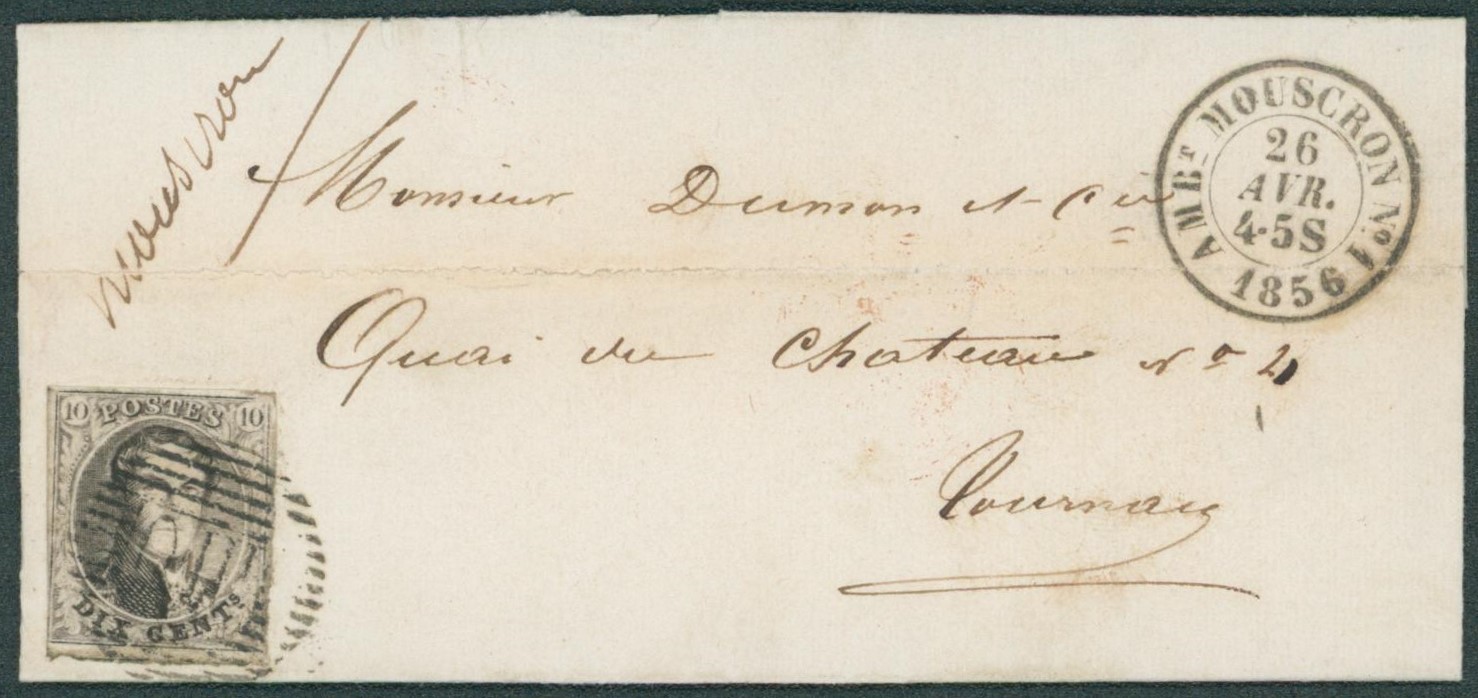 mouscron
Monsieur Dumon et Cie
Quai du Chateau No 2
Tournay
AMBT MOUSCRON No 1
26
AVR.
4-5S
1856
10 POSTES 10
DIX CENTS